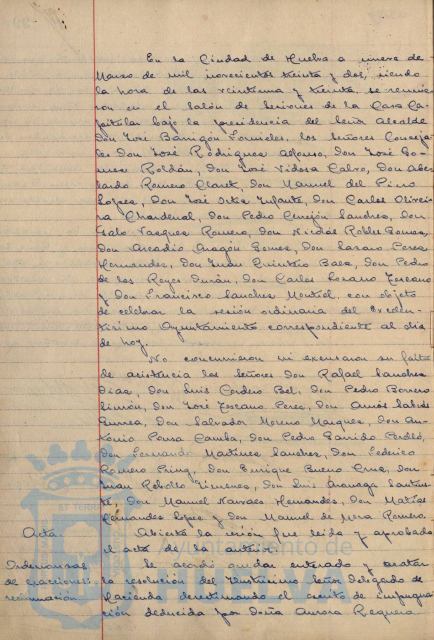 En la Ciudad de Huelva a nueve de
Marzo de mil novecientos treinta y dos, siendo
la hora de las veintiuna y treinta, se reunie-
ron en el salón de sesiones de la Casa Ca-
pitular bajo la presidencia del Señor Alcalde
Don José Barrigón Fornieles, los Señores Conceja-
les Don José Rodriguez Alfonso, Don José Pon-
ce Roldán, Don José Vidosa Calvo, Don Abe-
lardo Romero Claret, Don Manuel del Pino
Lopez, Don José Ortiz Infante, Don Carlos Oliveira
Chardenal, Don Pedro Cerejón Sanchez, Don
Galo Vazquez Romero, Don Nicolás Robles Gomez,
Don Arcadio Aragón Gomez, Don Lazaro Perez
Hernandez, Don Juan Quintero Baez, Don Pedro
de los Reyes Durán, Don Carlos Lozano Toscano
y Don Francisco Sanchez Montiel, con objeto
de celebrar la sesión ordinaria del Excelen-
tisimo Ayuntamiento correspondiente al dia
de hoy.
No concurrieron ni excusaron su falta
de asistencia los Señores Don Rafael Sanchez
Diaz, Don Luis Cordero Bel, Don Pedro Borrero
Limón, Don José Toscano Perez, Don Amós
Don Salvador Moreno Marquez, Don An-
tonio Pousa Camba, Don Pedro Garrido Perelló,
Don Fernando Martinez Sanchez, Don Federico
Romero Don Enrique Bueno Cruz, Don
Juan Rebollo Jimenez, Don Luis
Don Manuel Narvaez Hernandez, Don Matías
Hernandez Lopez y Don Manuel de Mora Romero.
Acta. Abierta la sesión fue leida y aprobada
el acta de la anterior.
Ordenanzas de exacciones: reclamación. Se acordó quedar enterado y acatar
la resolución del Ilustrisimo Señor Delegado de
Hacienda desestimando el escrito de impugna-
ción deducida por Doña Aurora Requena
Ayuntamiento de